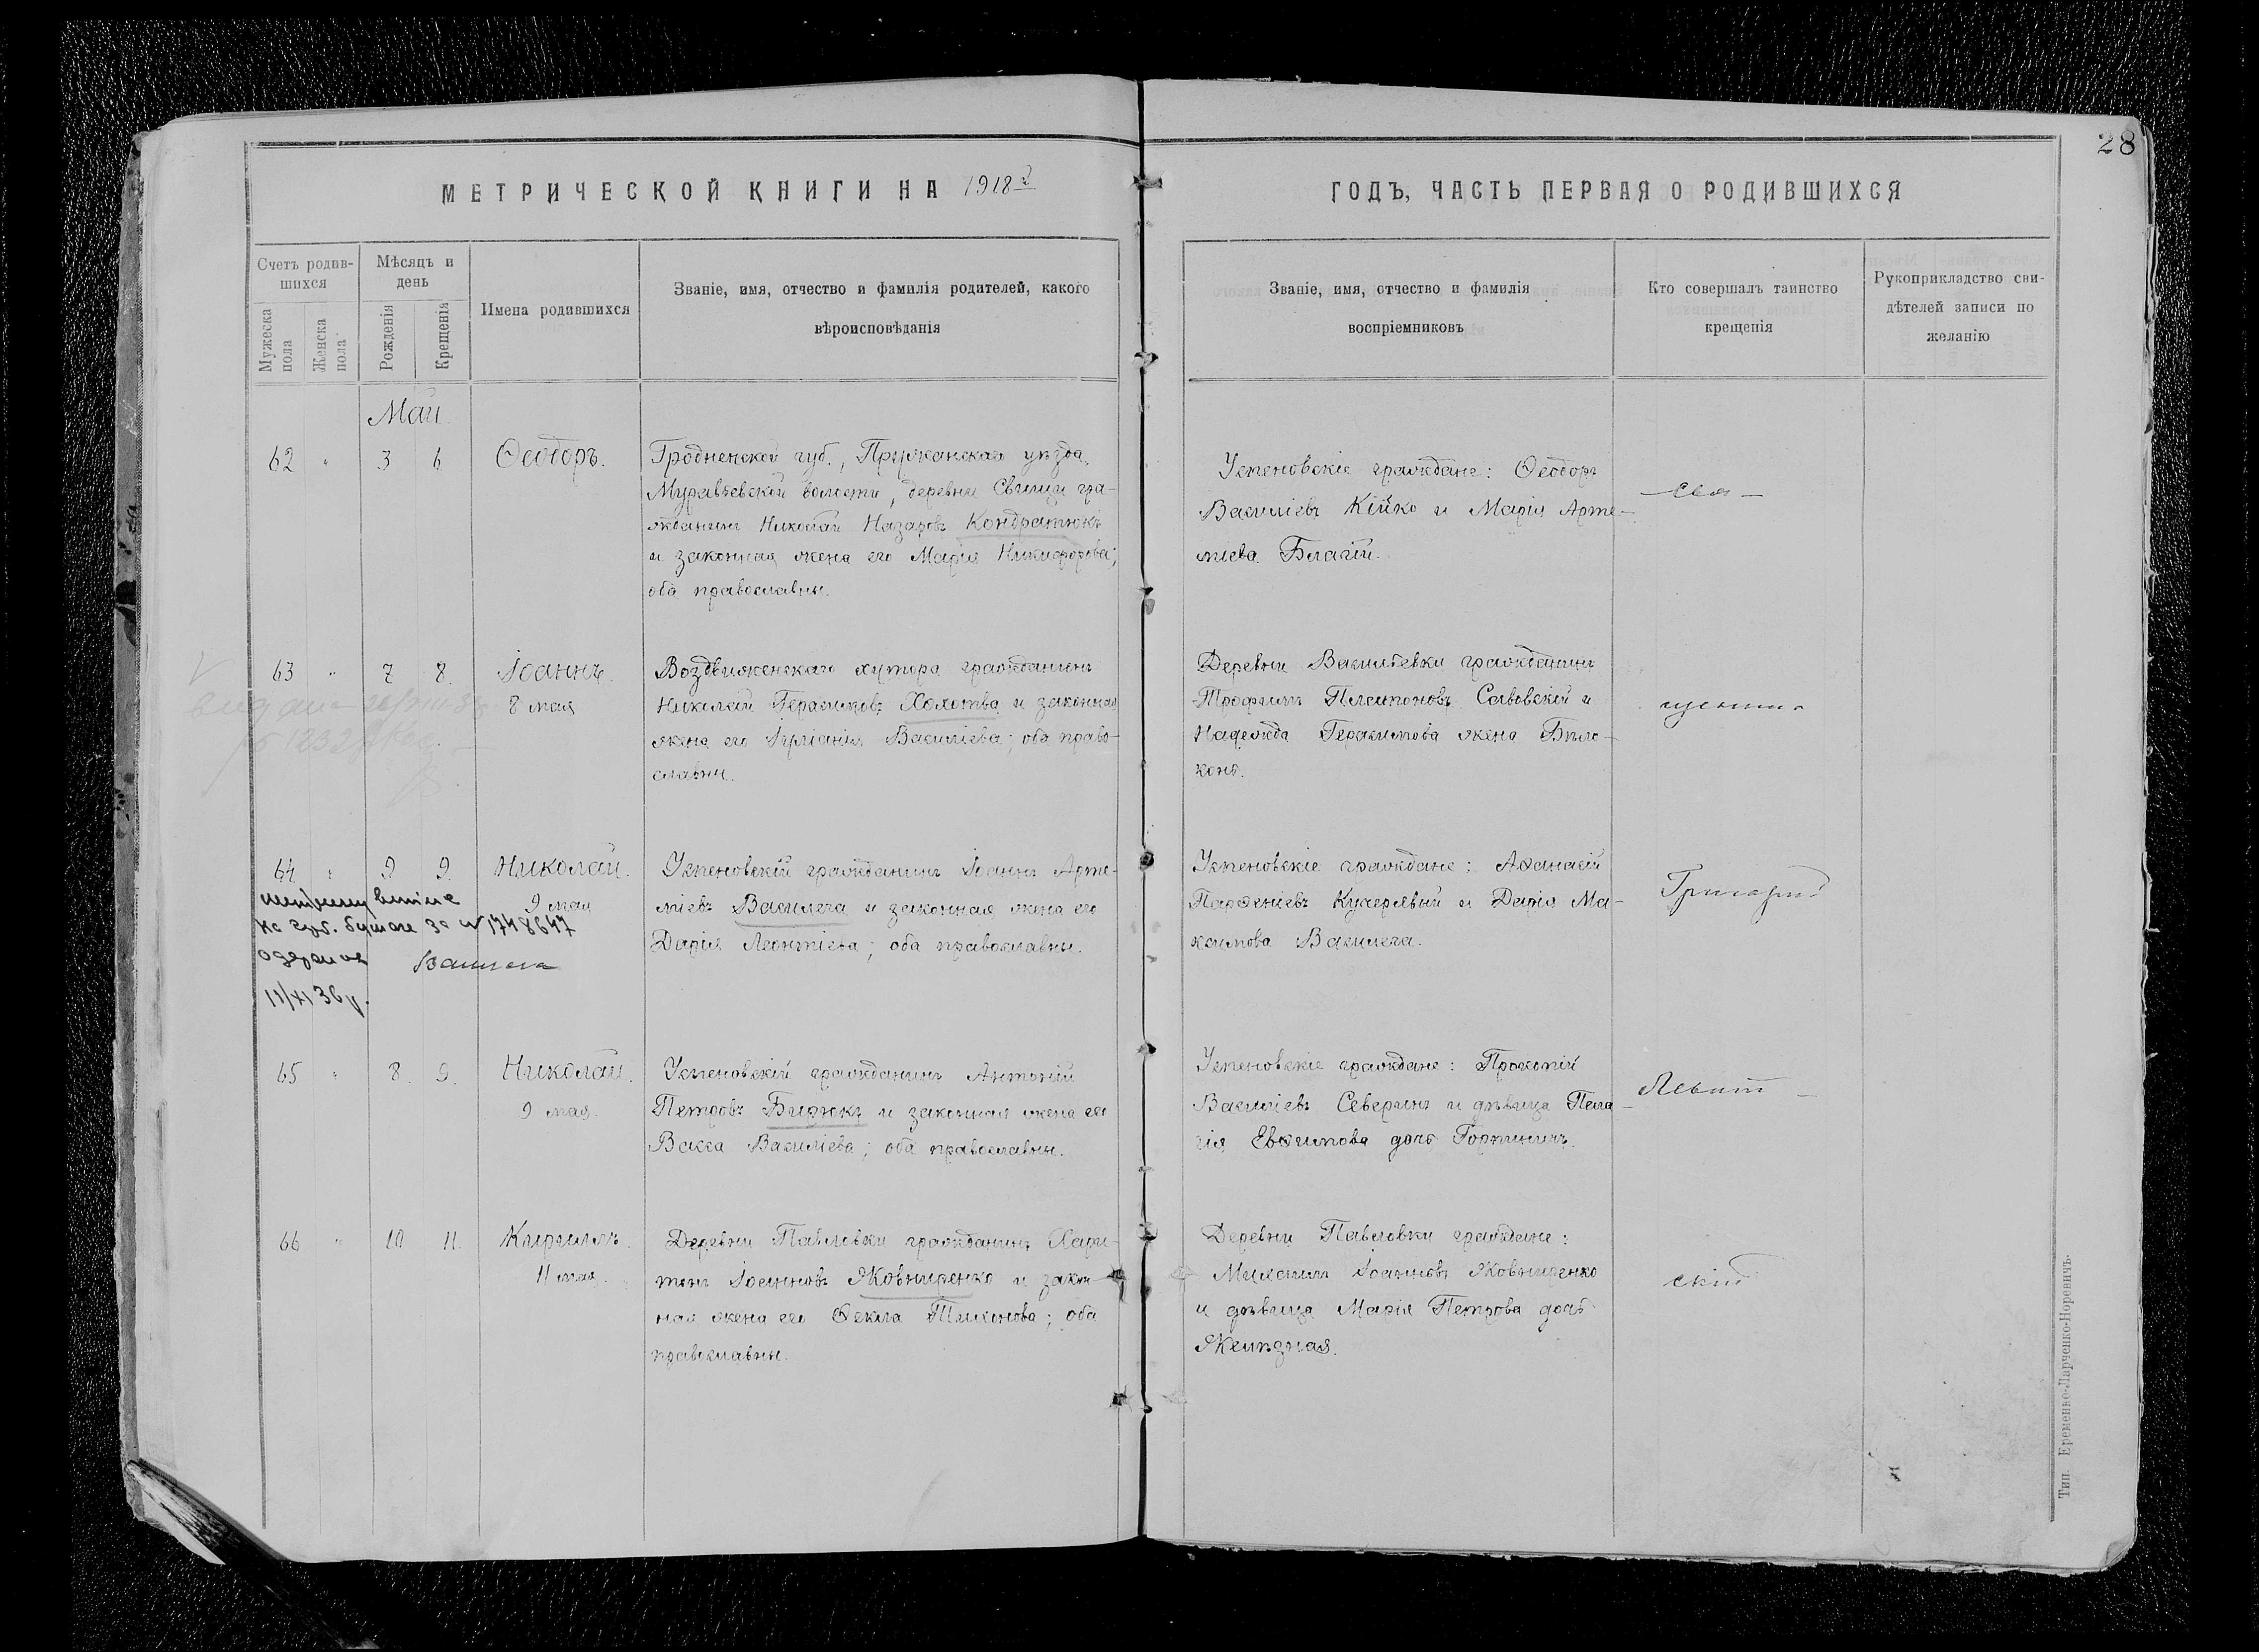 28
МЕТРИЧЕСКОЙ КНИГИ НА 1918 г
ГОДЪ, ЧАСТЬ ПЕРВАЯ О РОДИВШИХСЯ
Счетъ родив-
шихся
Мужеска пола
Женска пола
Мѣсяцъ и
день
Рожденія
Крещенія
Имена родившихся
Званіе, имя, отчество и фамилія родителей, какого
вѣроисповѣданія
Званіе, имя, отчество и фамилія
воспріемниковъ
Кто совершалъ таинство
крещенія
Рукоприкладство сви-
дѣтелей записи по
желанію
Май
62 " 3 6 Ѳеодоръ.
Гродненской губ., Пружанскаго уѣзда,
Муравьевской волости, деревни Свищи гра-
жданинъ Николай Назаровъ Кондратюкъ
и законная жена его Марія Никифорова;
оба православны.
Успеновскіе граждане: Ѳеодоръ
Василіевъ Кійко и Марія Арте-
міева Благій.
Свя-
63 " 7 8. Іоаннъ.
8 мая
Воздвиженскаго хутора гражданинъ
Николай Герасимовъ Холотва и законная
жена его Василіева; оба право-
славны.
Деревни Васильевки гражданинъ
Трофимъ Савовскій и
Надежда Герасимова жена Бѣло-
конь.
щенник
64 " 9 9. Николай.
9 мая
Успеновскій гражданинъ Іоаннъ Арте-
міевъ Василега и законная жена его
Дарія Леонтіева; оба православны.
Успеновскіе граждане: Аѳанасій
Парѳеніевъ Кучерявый и Дарія Ма-
ксимова Василега.
Григорій
за № 1748647
11/XI 36 р.
65 " 8. 9. Николай.
9 мая.
Успеновскій гражданинъ Антоній
Петровъ Бидюкъ и законная жена его
Васса Василіева; оба православны.
Успеновскіе граждане: Прокопій
Василіевъ Северинъ и дѣвица Пела-
гія Евѳимова дочь
Левит-
66 " 10 11. Кириллъ.
11 мая.
Деревни Павловки гражданинъ Хари-
тонъ Іоанновъ Жовниренко и закон-
ная жена его Ѳекла Тихонова; оба
православны.
Деревни Павловки граждане:
Іоанновъ Жовниренко
и дѣвица Марія Петрова дочь
скій
Тип. Еременко-Ларченко-Норевичъ.